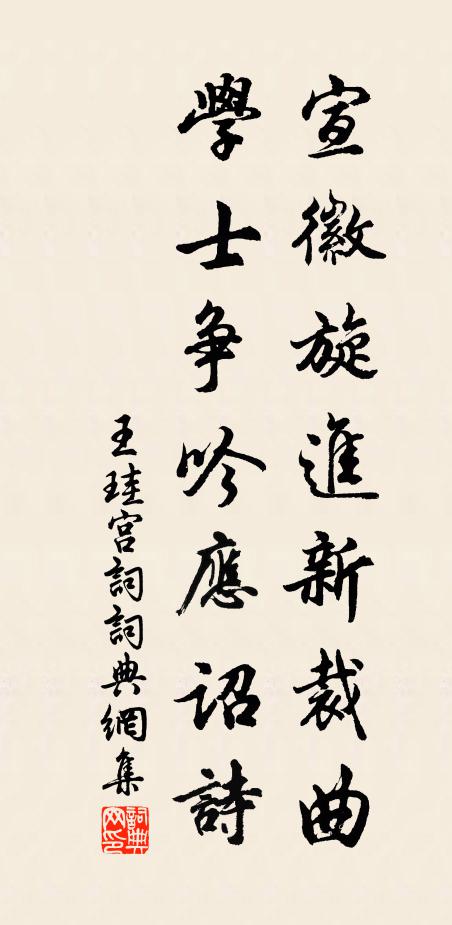 宣徽旋進新裁曲
學士爭吟應詔詩
王珪宮詞詞典網集
詞典网印